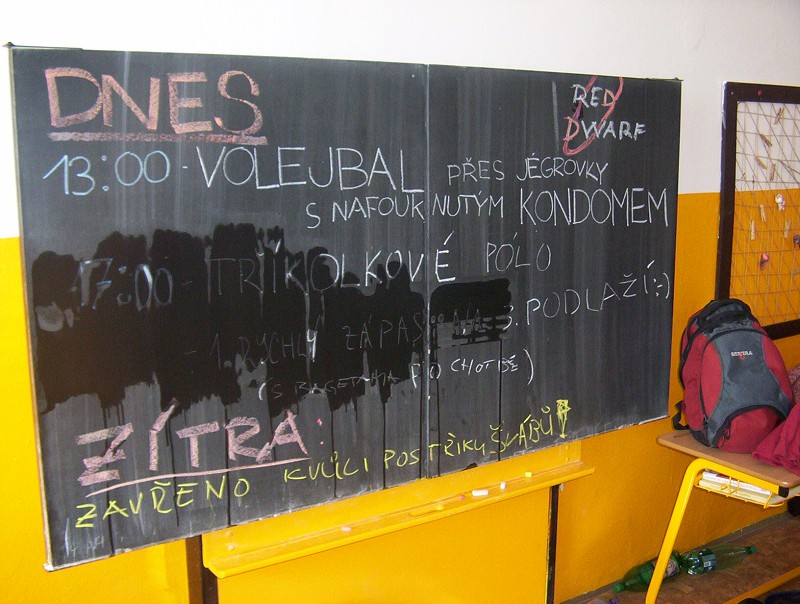 DNES
RED
DWARF
13:00 - VOLEJBAL PŘES JÉGROVKY
S NAFOUKNUTÝM KONDOMEM
17:00 - TŘÍKOLKOVÉ PÓLO
- 1. RYCHLÝ ZÁPAS 3. PODLAŽÍ :-)
(S BAGETAMA PO CHOTBĚ)
ZÍTRA:
ZAVŘENO KVŮLI POSTŘIKU ŠVÁBŮ!